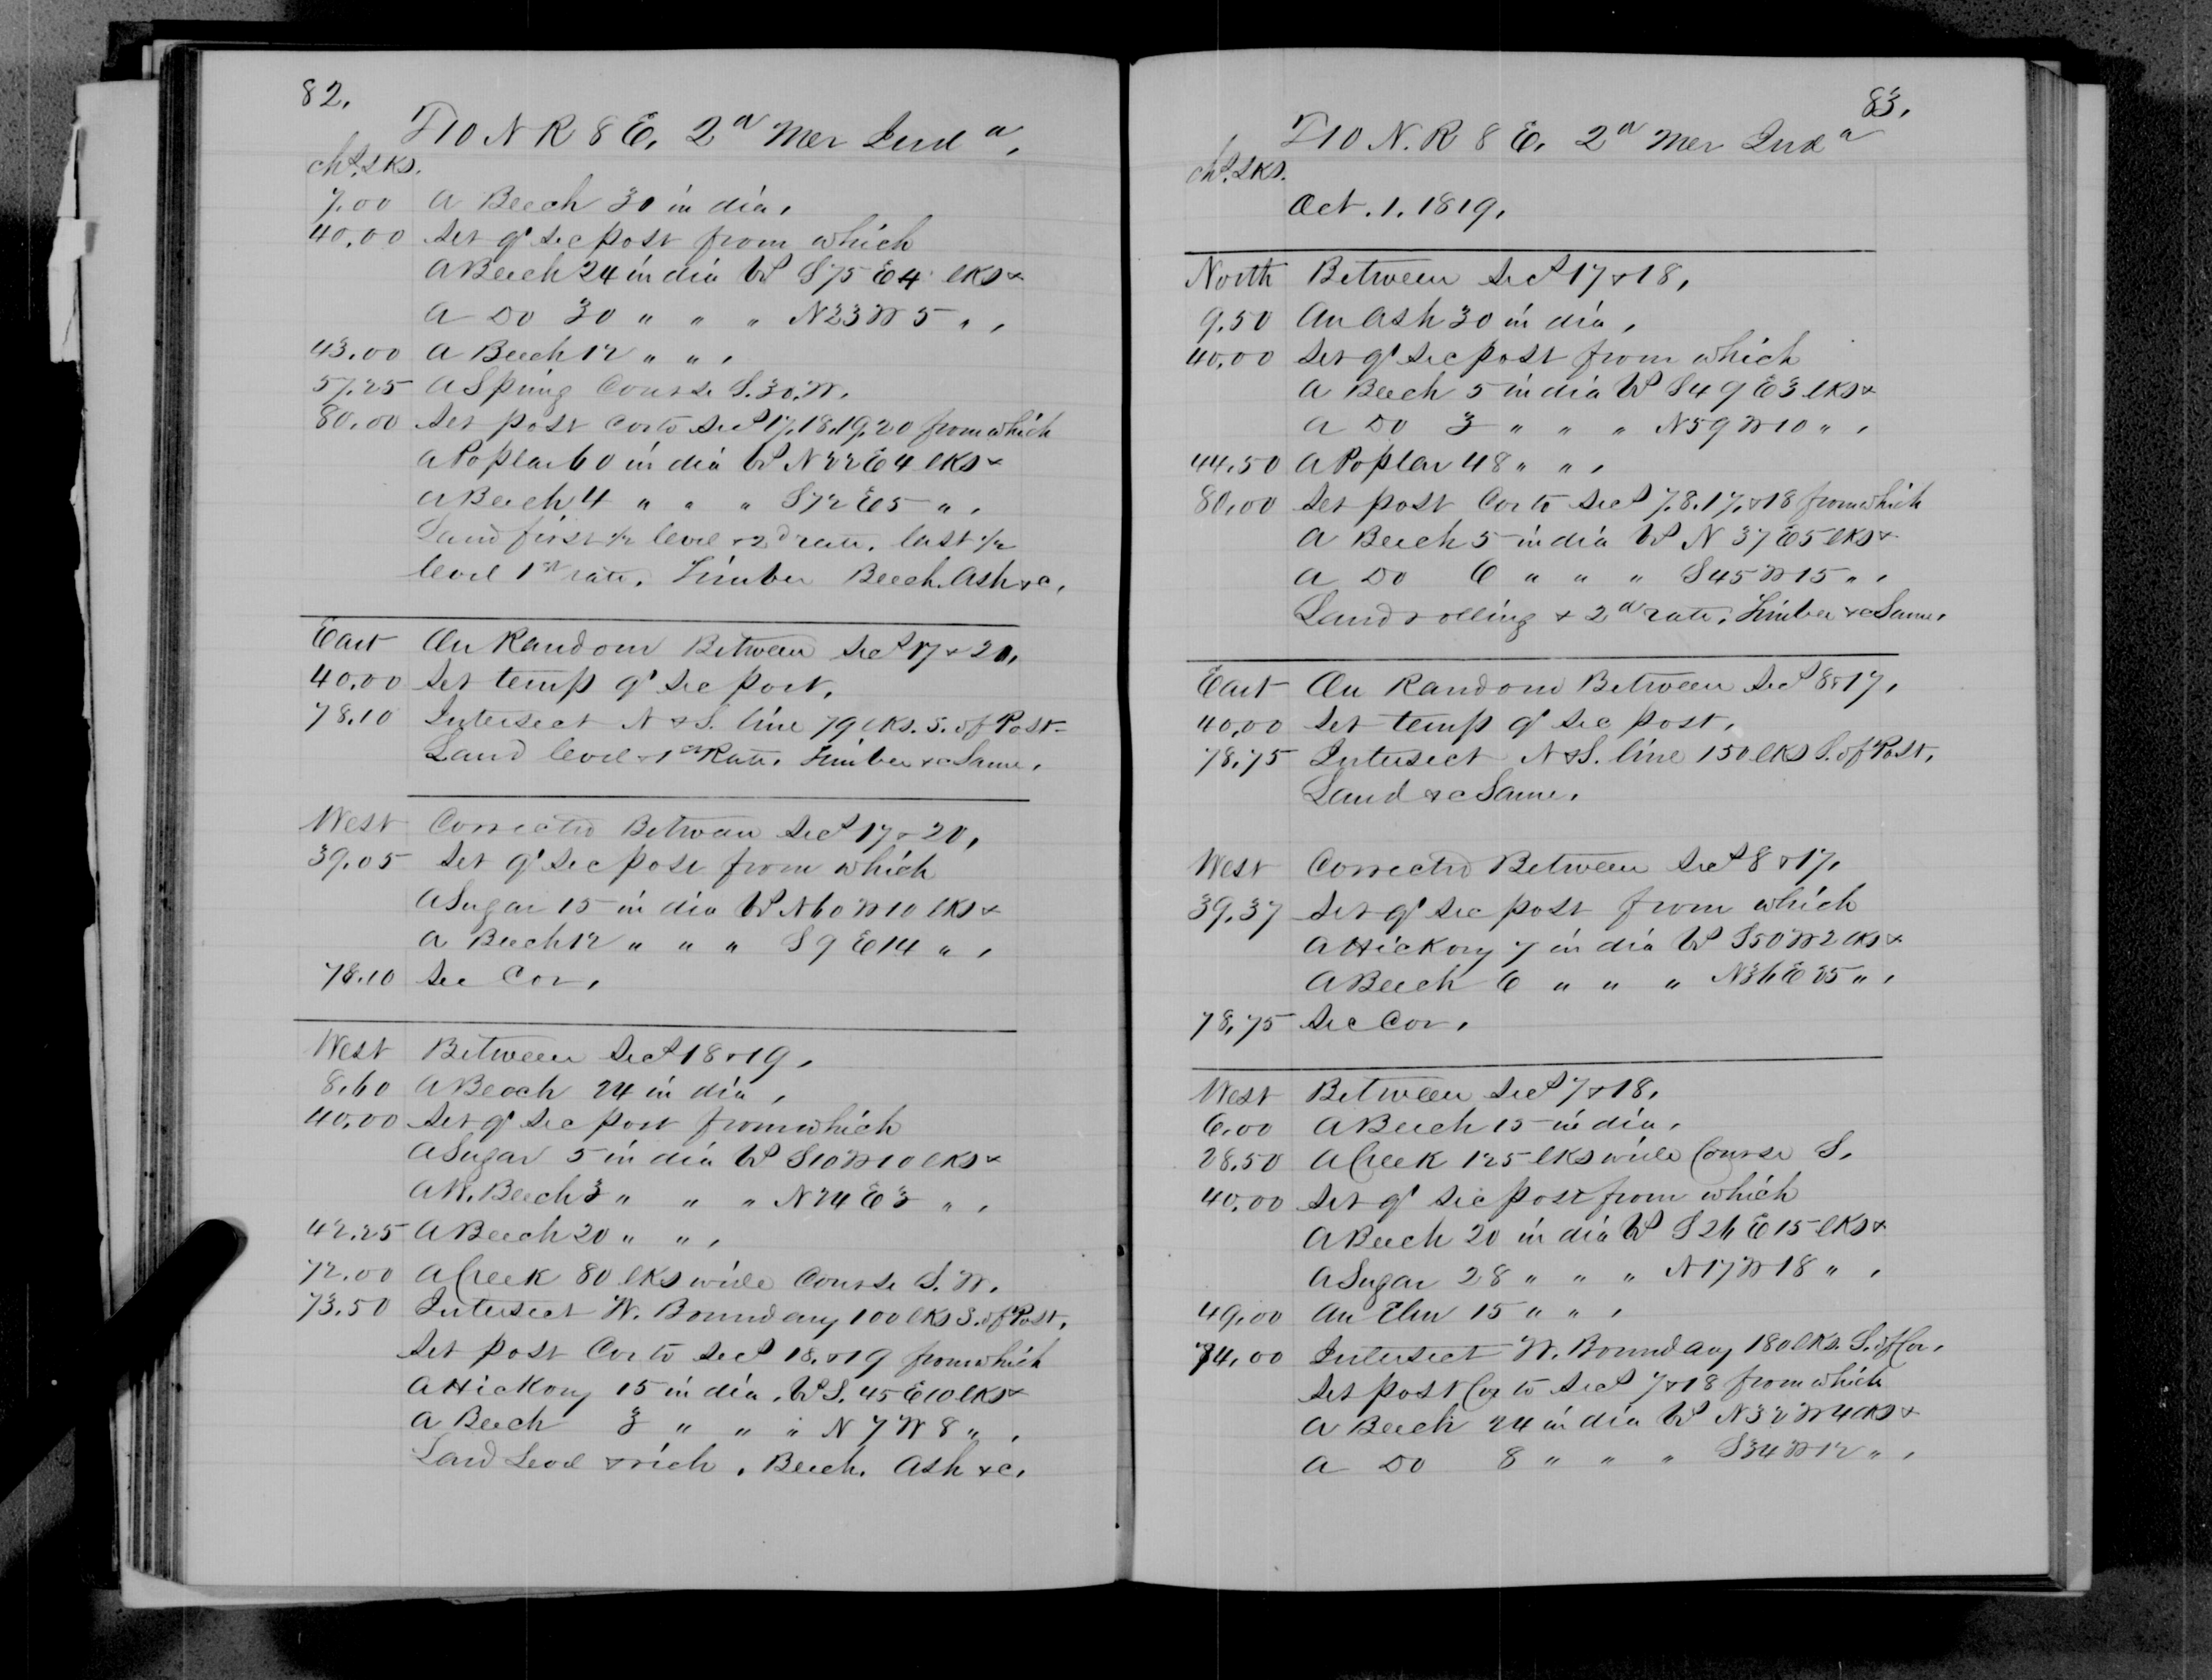 82.
T 10 N R 8 E. 2d Mer Inda.
chs. lks.
7.00 A Beech 30 in dia.
40.00 Set qr sec post from which
A Beech 24 in dia brs S 75 E 4 lks &
A Do 30 " " " N 23 W 5 " .
43.00 A Beech 12 " " .
57.25 A Spring Course S. 30. W.
80.00 Set post cor to Secs 17. 18. 19. 20 from which
A Poplar 60 in dia brs N 22 E 4 lks &
A Beech 4 " " " S 72 E 5 " .
Land first 1/2 level & 2d rate. last 1/2
level 1st rate. Timber Beech. Ash &c.
East On Random Between Secs 17 & 20.
40.00 Set temp qr sec post.
78.10 Intersect N & S. line 79 lks. S. of Post -
Land level & 1st Rate. Timber &c Same.
West Corrected Between Secs 17 & 20.
39.05 Set qr sec post from which
A Sugar 15 in dia brs N 60 W 10 lks &
A Beech 12 " " " S 9 E 14 " .
78.10 Sec Cor.
West Between Secs 18 & 19.
8.60 A Beech 24 in dia .
40.00 Set qr sec post from which
A Sugar 5 in dia brs S 10 W 10 lks &
A W. Beech 3 " " " N 24 E 3 " .
42.25 A Beech 20 " " .
72.00 A Creek 80 lks wide Course S. W.
73.50 Intersect W. Boundary 100 lks S. of Post.
Set post Cor to Secs 18. & 19 from which
A Hickory 15 in dia. brs S. 45 E 10 lks &
A Beech 3 " " " N 7 W 8 " .
Land Level & rich . Beech. Ash &c.
83.
T 10 N. R 8 E. 2d Mer Inda
chs. lks.
Oct. 1. 1819.
North Between Secs 17 & 18.
9.50 An Ash 30 in dia .
40.00 Set qr sec post from which
A Beech 5 in dia brs S 49 E 3 lks &
A Do 3 " " " N 59 W 10 " .
44.50 A Poplar 48 " " .
80.00 Set post Cor to Secs 7. 8. 17. & 18 from which
A Beech 5 in dia brs N 37 E 5 lks &
A Do 6 " " " S 45 W 15 " .
Land rolling & 2d rate. Timber &c Same.
East On Random Between Secs 8 & 17.
40.00 Set temp qr sec post.
78.75 Intersect N & S. line 150 lks S. of Post.
Land &c Same.
West Corrected Between Secs 8 & 17.
39.37 Set qr sec post from which
A Hickory 7 in dia brs S 50 W 2 lks &
A Beech 6 " " " N 36 E 35 " .
78.75 Sec Cor.
West Between Secs 7 & 18.
6.00 A Beech 15 in dia.
28.50 A Creek 125 lks wide Course S.
40.00 Set qr sec post from which
A Beech 20 in dia brs S 26 E 15 lks &
A Sugar 28 " " " N 17 W 18 " .
49.00 An Elm 15 " " .
74.00 Intersect W. Boundary 180 lks. S. of Cor.
Set post Cor to Secs 7 & 18 from which
A Beech 24 in dia brs N 32 W 4 lks &
A Do 8 " " " S 34 W 12 " .